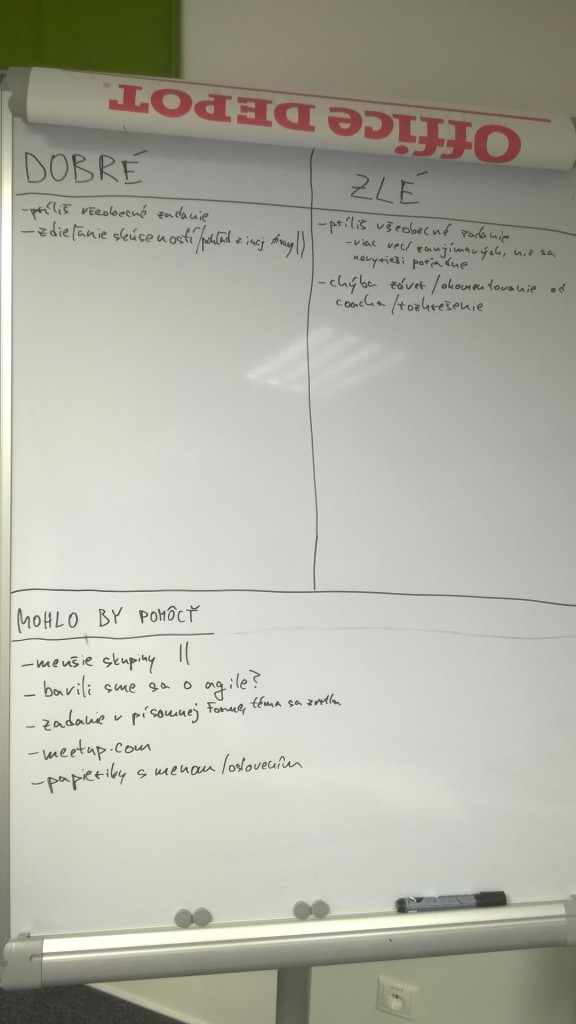 Office DEPOT
DOBRÉ
-příliš všeobecné zadanie
-zdieľanie skúseností/pohľad z inej strany ||
ZLÉ
-příliš všeobecné zadanie
-viac vecí zaujímavých, nie sa
nevyrieši poriadne
-chýba záver/okomentovanie od
coacha/rozhrešenie
MOHLO BY POMÔCŤ
-menšie skupiny ||
-bavili sme sa o agile?
-zadanie v písomnej forme, téma sa zvrtla
-meetup.com
-papieriky s menom/oslovením